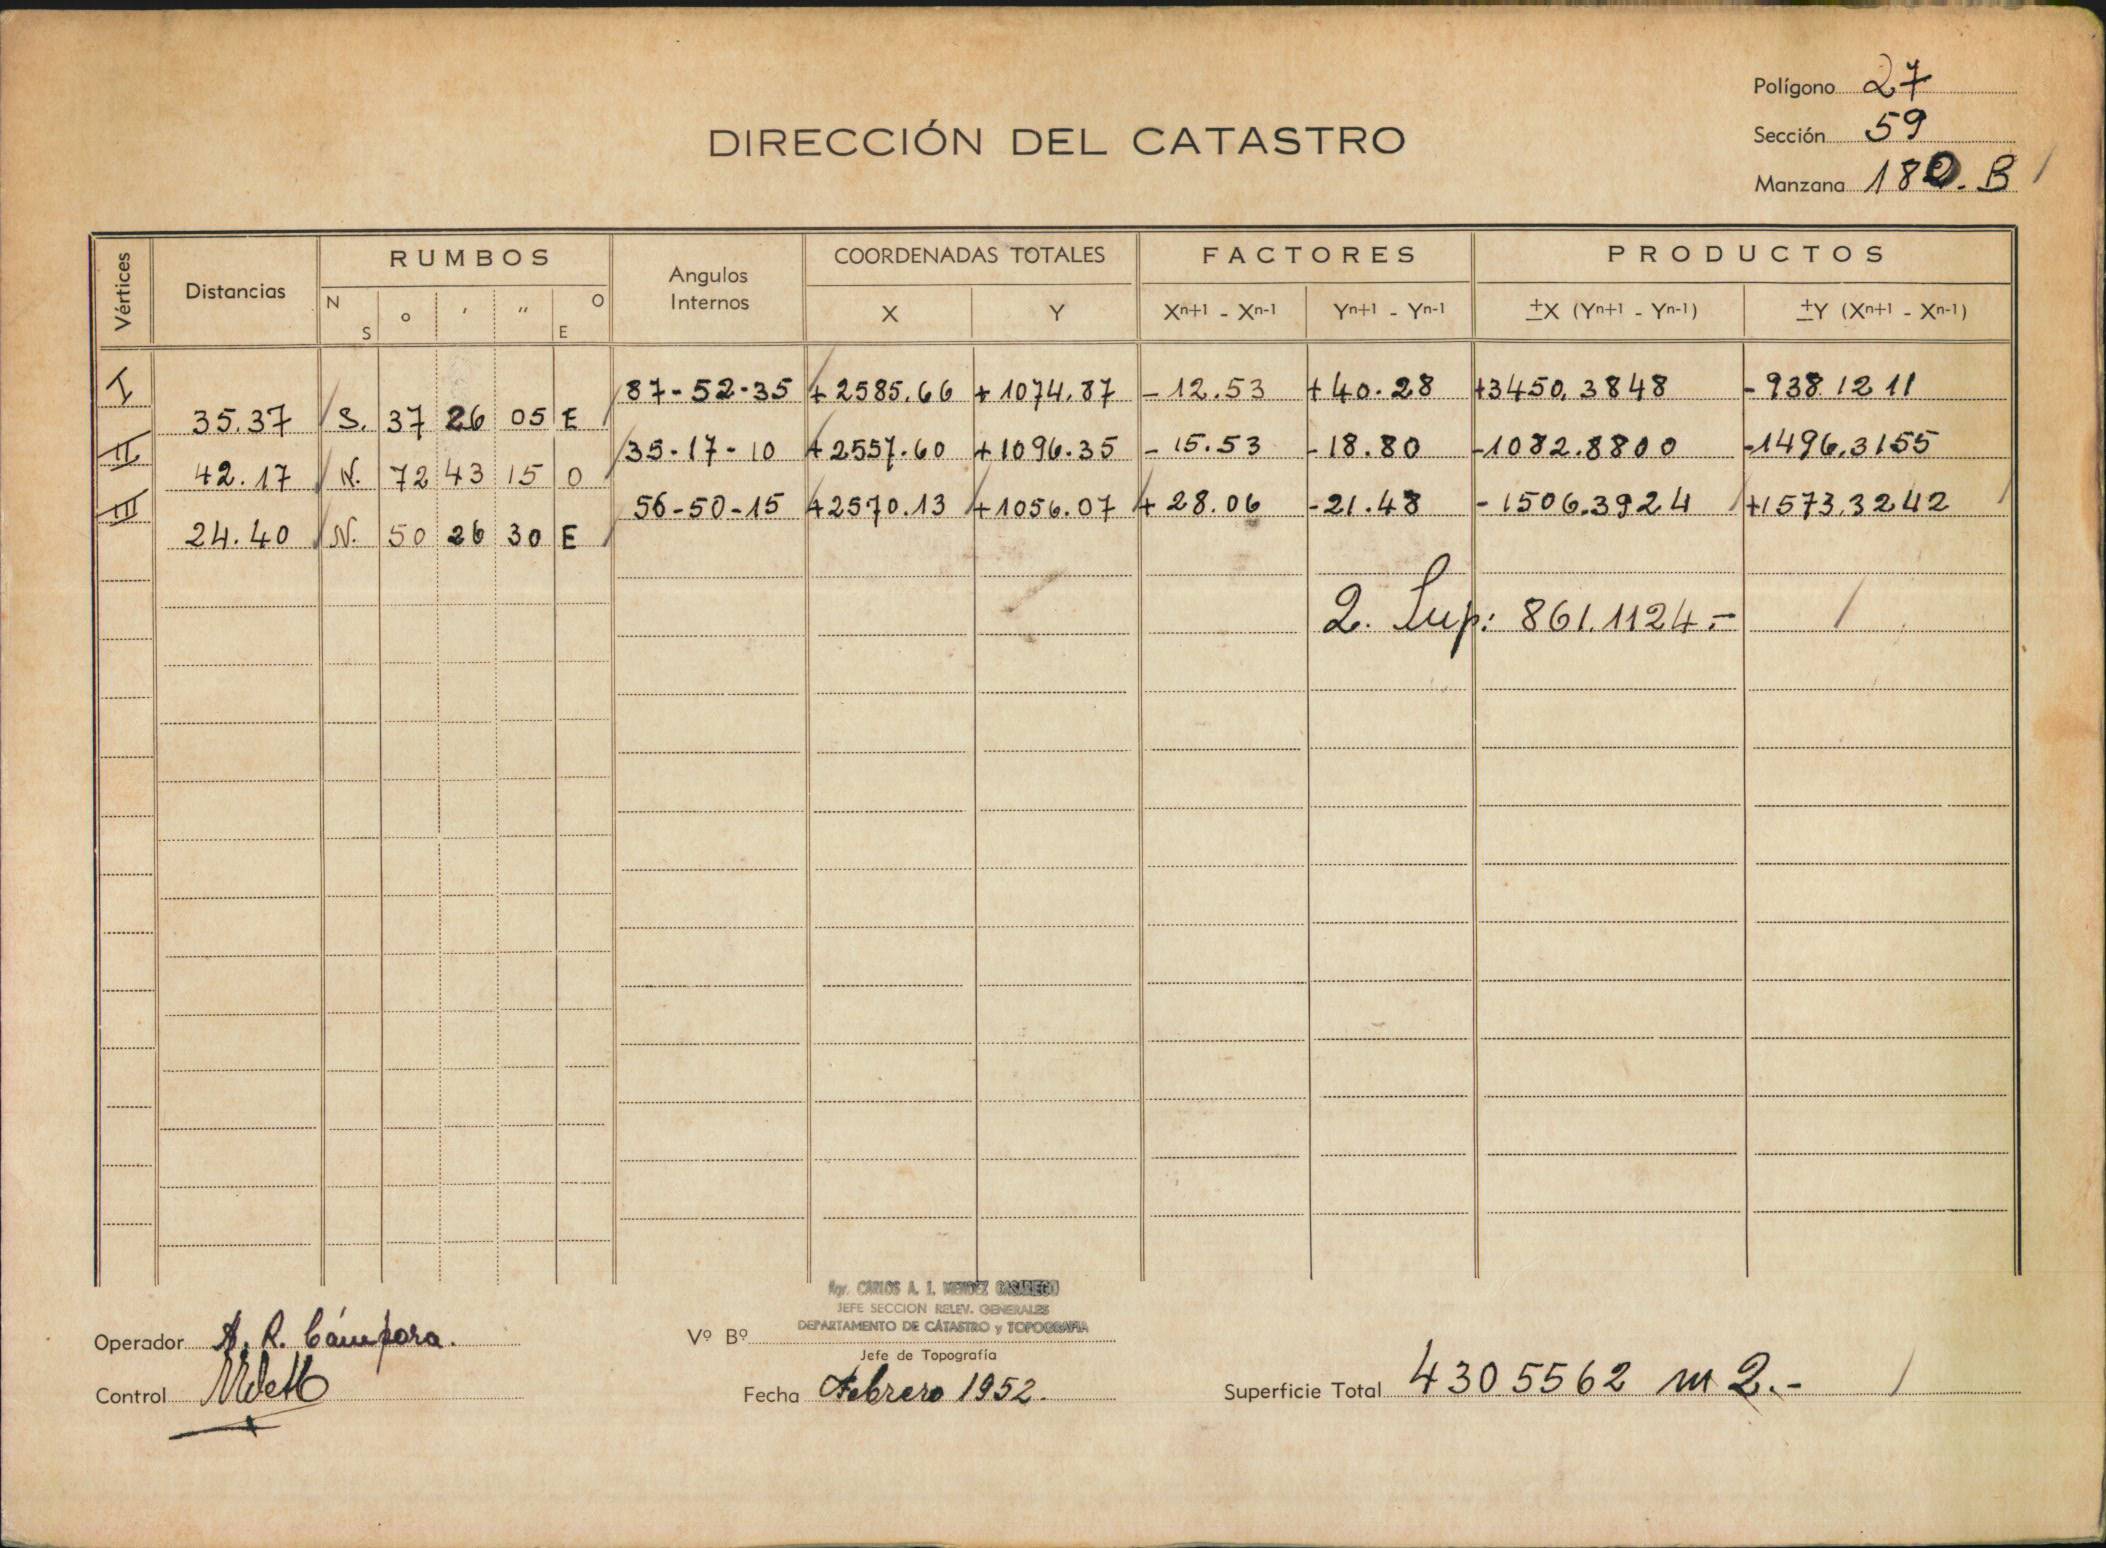 Polígono 27
DIRECCIÓN DEL CATASTRO
Sección 59
Manzana 180. B
Vértices Distancias RUMBOS Angulos Internos COORDENADAS TOTALES FACTORES PRODUCTOS
N S o ' " O E X Y Xn+1 - Xn-1 Yn+1 - Yn-1 ±X (Yn+1 - Yn-1) ±Y (Xn+1 - Xn-1)
I 87-52-35 +2585.66 +1074.87 -12.53 +40.28 +3450.3848 -938.1211
35.37 S. 37 26 05 E
II 35-17-10 +2557.60 +1096.35 -15.53 -18.80 -1082.8800 -1496.3155
42.17 N. 72 43 15 O
III 56-50-15 +2570.13 +1056.07 +28.06 -21.48 -1506.3924 +1573.3242
24.40 N. 50 26 30 E
2. Sup: 861.1124.-
Agr. CARLOS A. I. MENDEZ CASARIEGO
JEFE SECCION RELEV. GENERALES
DEPARTAMENTO DE CATASTRO y TOPOGRAFIA
Operador A. R. Cámpora.
Vº Bº
Jefe de Topografía
Control
Fecha Febrero 1952.
Superficie Total 4305562 m2.-